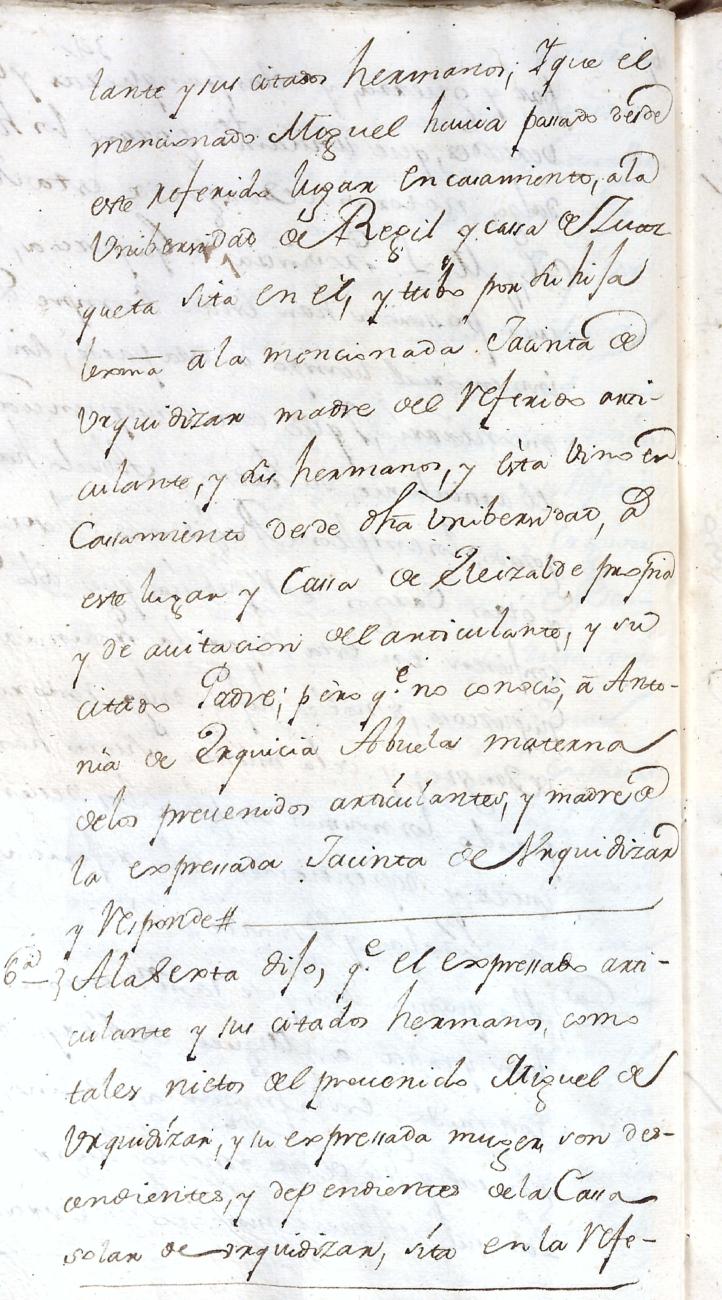 lante y sus citados hermanos; Y que el
mencionado Miguel hauia passado desde
este referido lugar en casamiento, a la
Vnibersidad de Regil y cassa de Zuaz
queta sita en el, y tubo por su hija
lexma â la mencionada Jacinta de
Vrquidizar madre del referido arti-
culante, y sus hermanos, y esta vino en
Cassamiento desde dha Vnibersidad, a
este lugar y Cassa de Eleizalde propia
y de auitacion del articulante, y su
citado Padre; pero q.e no conoció, â Anto-
nia de Vrquicia Abuela materna
de los preuenidos articulantes, y madre de
la expressada Jacinta de Vrquidizar
y responde #
6a A la Sexta dijo, q.e el expressado arti-
culante y sus citados hermanos, como
tales nietos del preuenido Miguel de
Vrquidizar, y su expressada muger, son des-
cendientes, y dependientes de la Cassa
solar de vrquidizar, sita en la refe-